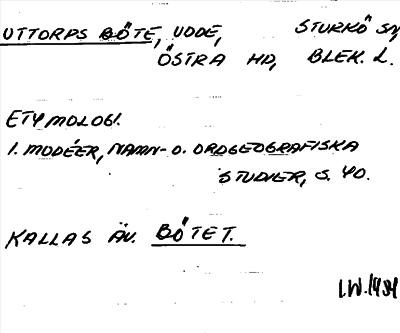 UTTORPS BÖTE, UDDE, STURKÖ SN,
ÖSTRA HD, BLEK. L.
ETYMOLOGI.
I. MODÉER, NAMN- O. ORDGEOGRAFISKA
STUDIER, S. 40.
KALLAS ÄV. BÖTET.
I.W. 1934